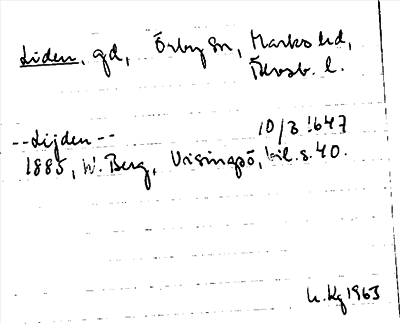 Liden, gd, Örby sn, Marks hd,
Älvsb. l.
--Lijden-- 10/3 1647
1885, W. Berg, Visingsö, bil. s. 40.
1963